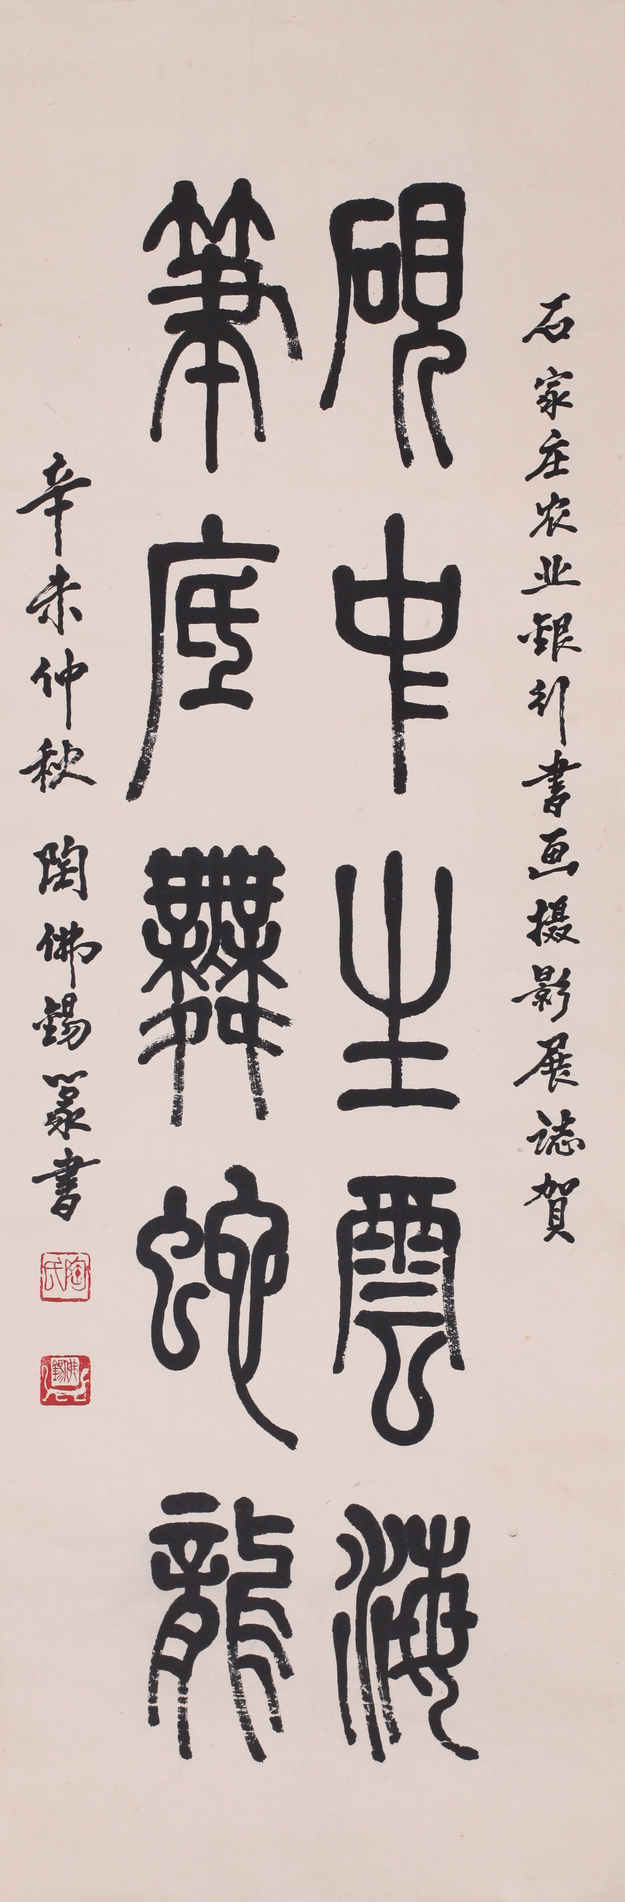 石家庄农业銀行書画摄影展誌賀
硯中生雲海
筆底舞蛇龍
辛未仲秋 陶佛錫篆書
陶氏
佛錫